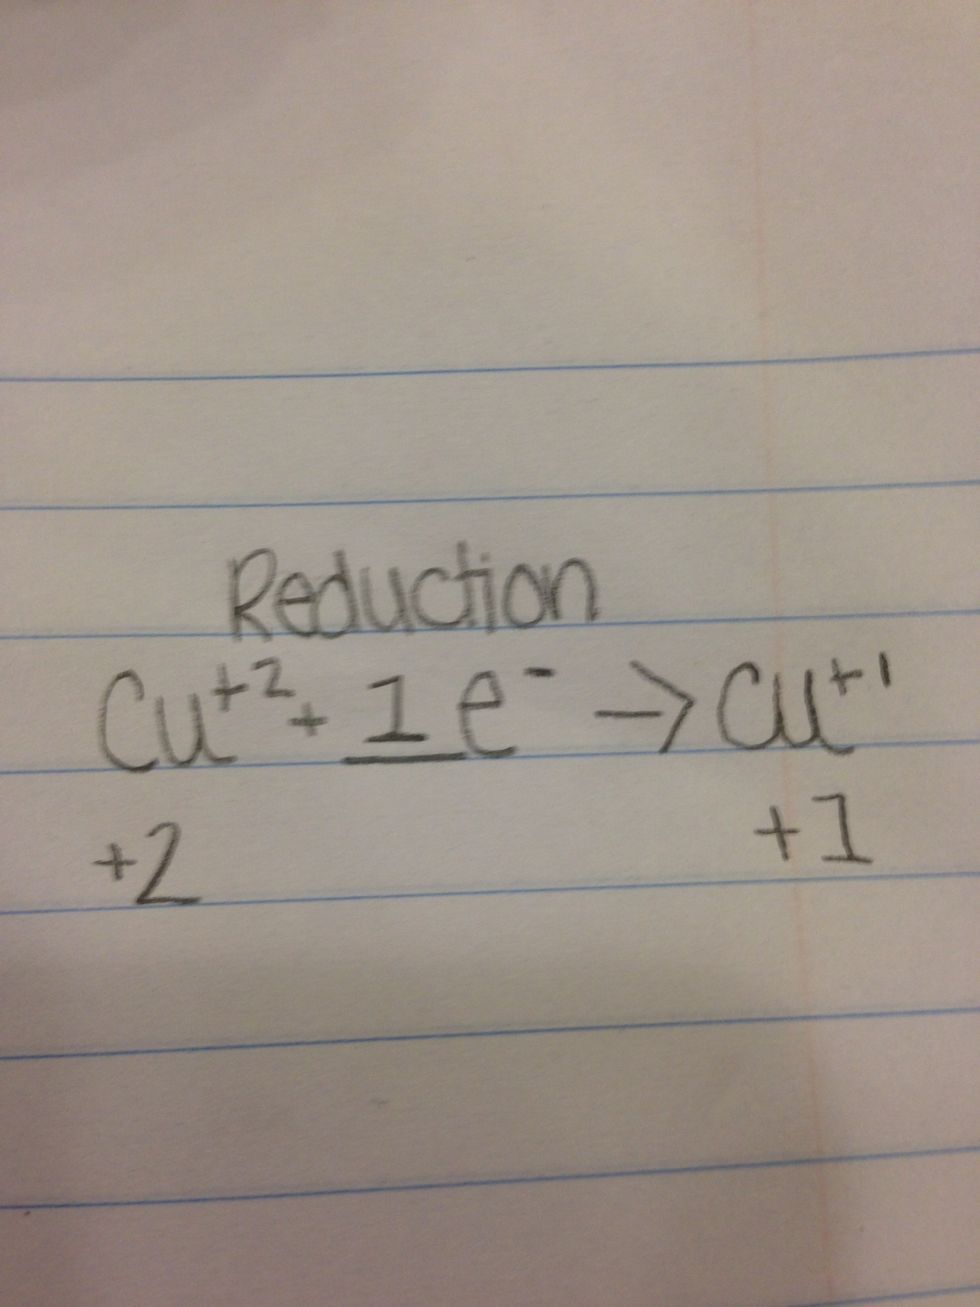 Reduction
Cu⁺² + 1 e⁻ → Cu⁺¹
+2 +1